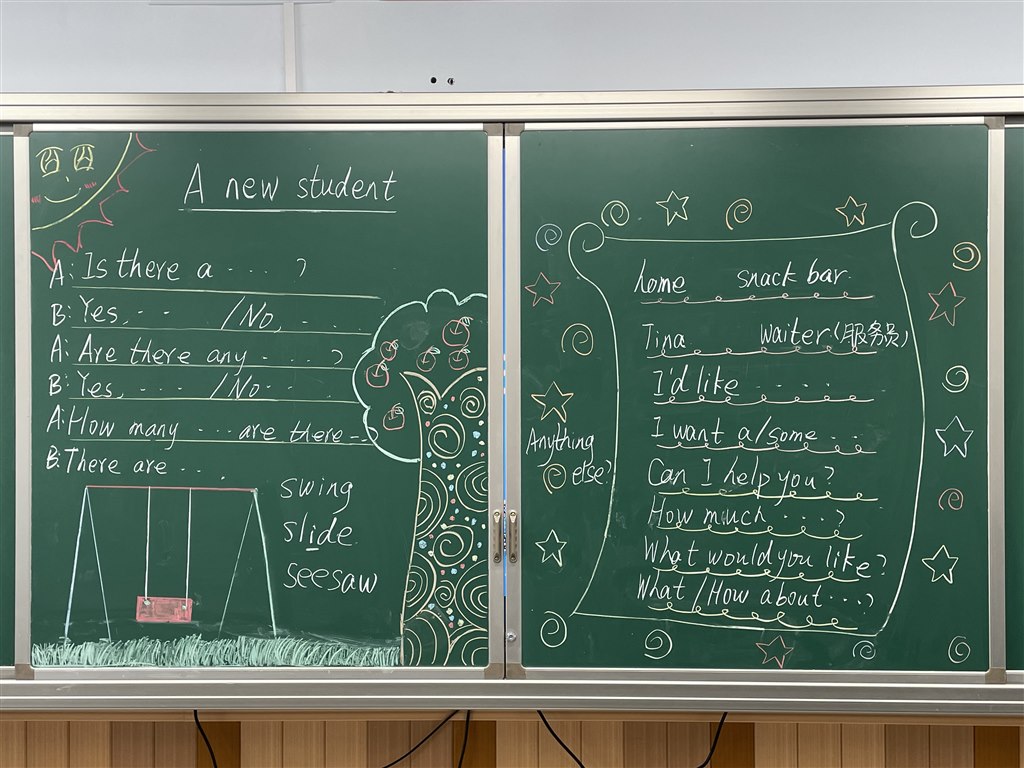 A new student
A: Is there a ....?
B: Yes, ... /No, ....
A: Are there any ....?
B: Yes, .... /No...
A: How many ... are there--
B: There are ...
swing
slide
seesaw
home snack bar
Tina waiter(服务员)
I'd like .....
I want a/some ...
Can I help you?
How much ....?
What would you like?
What /How about ...?
Anything
else?